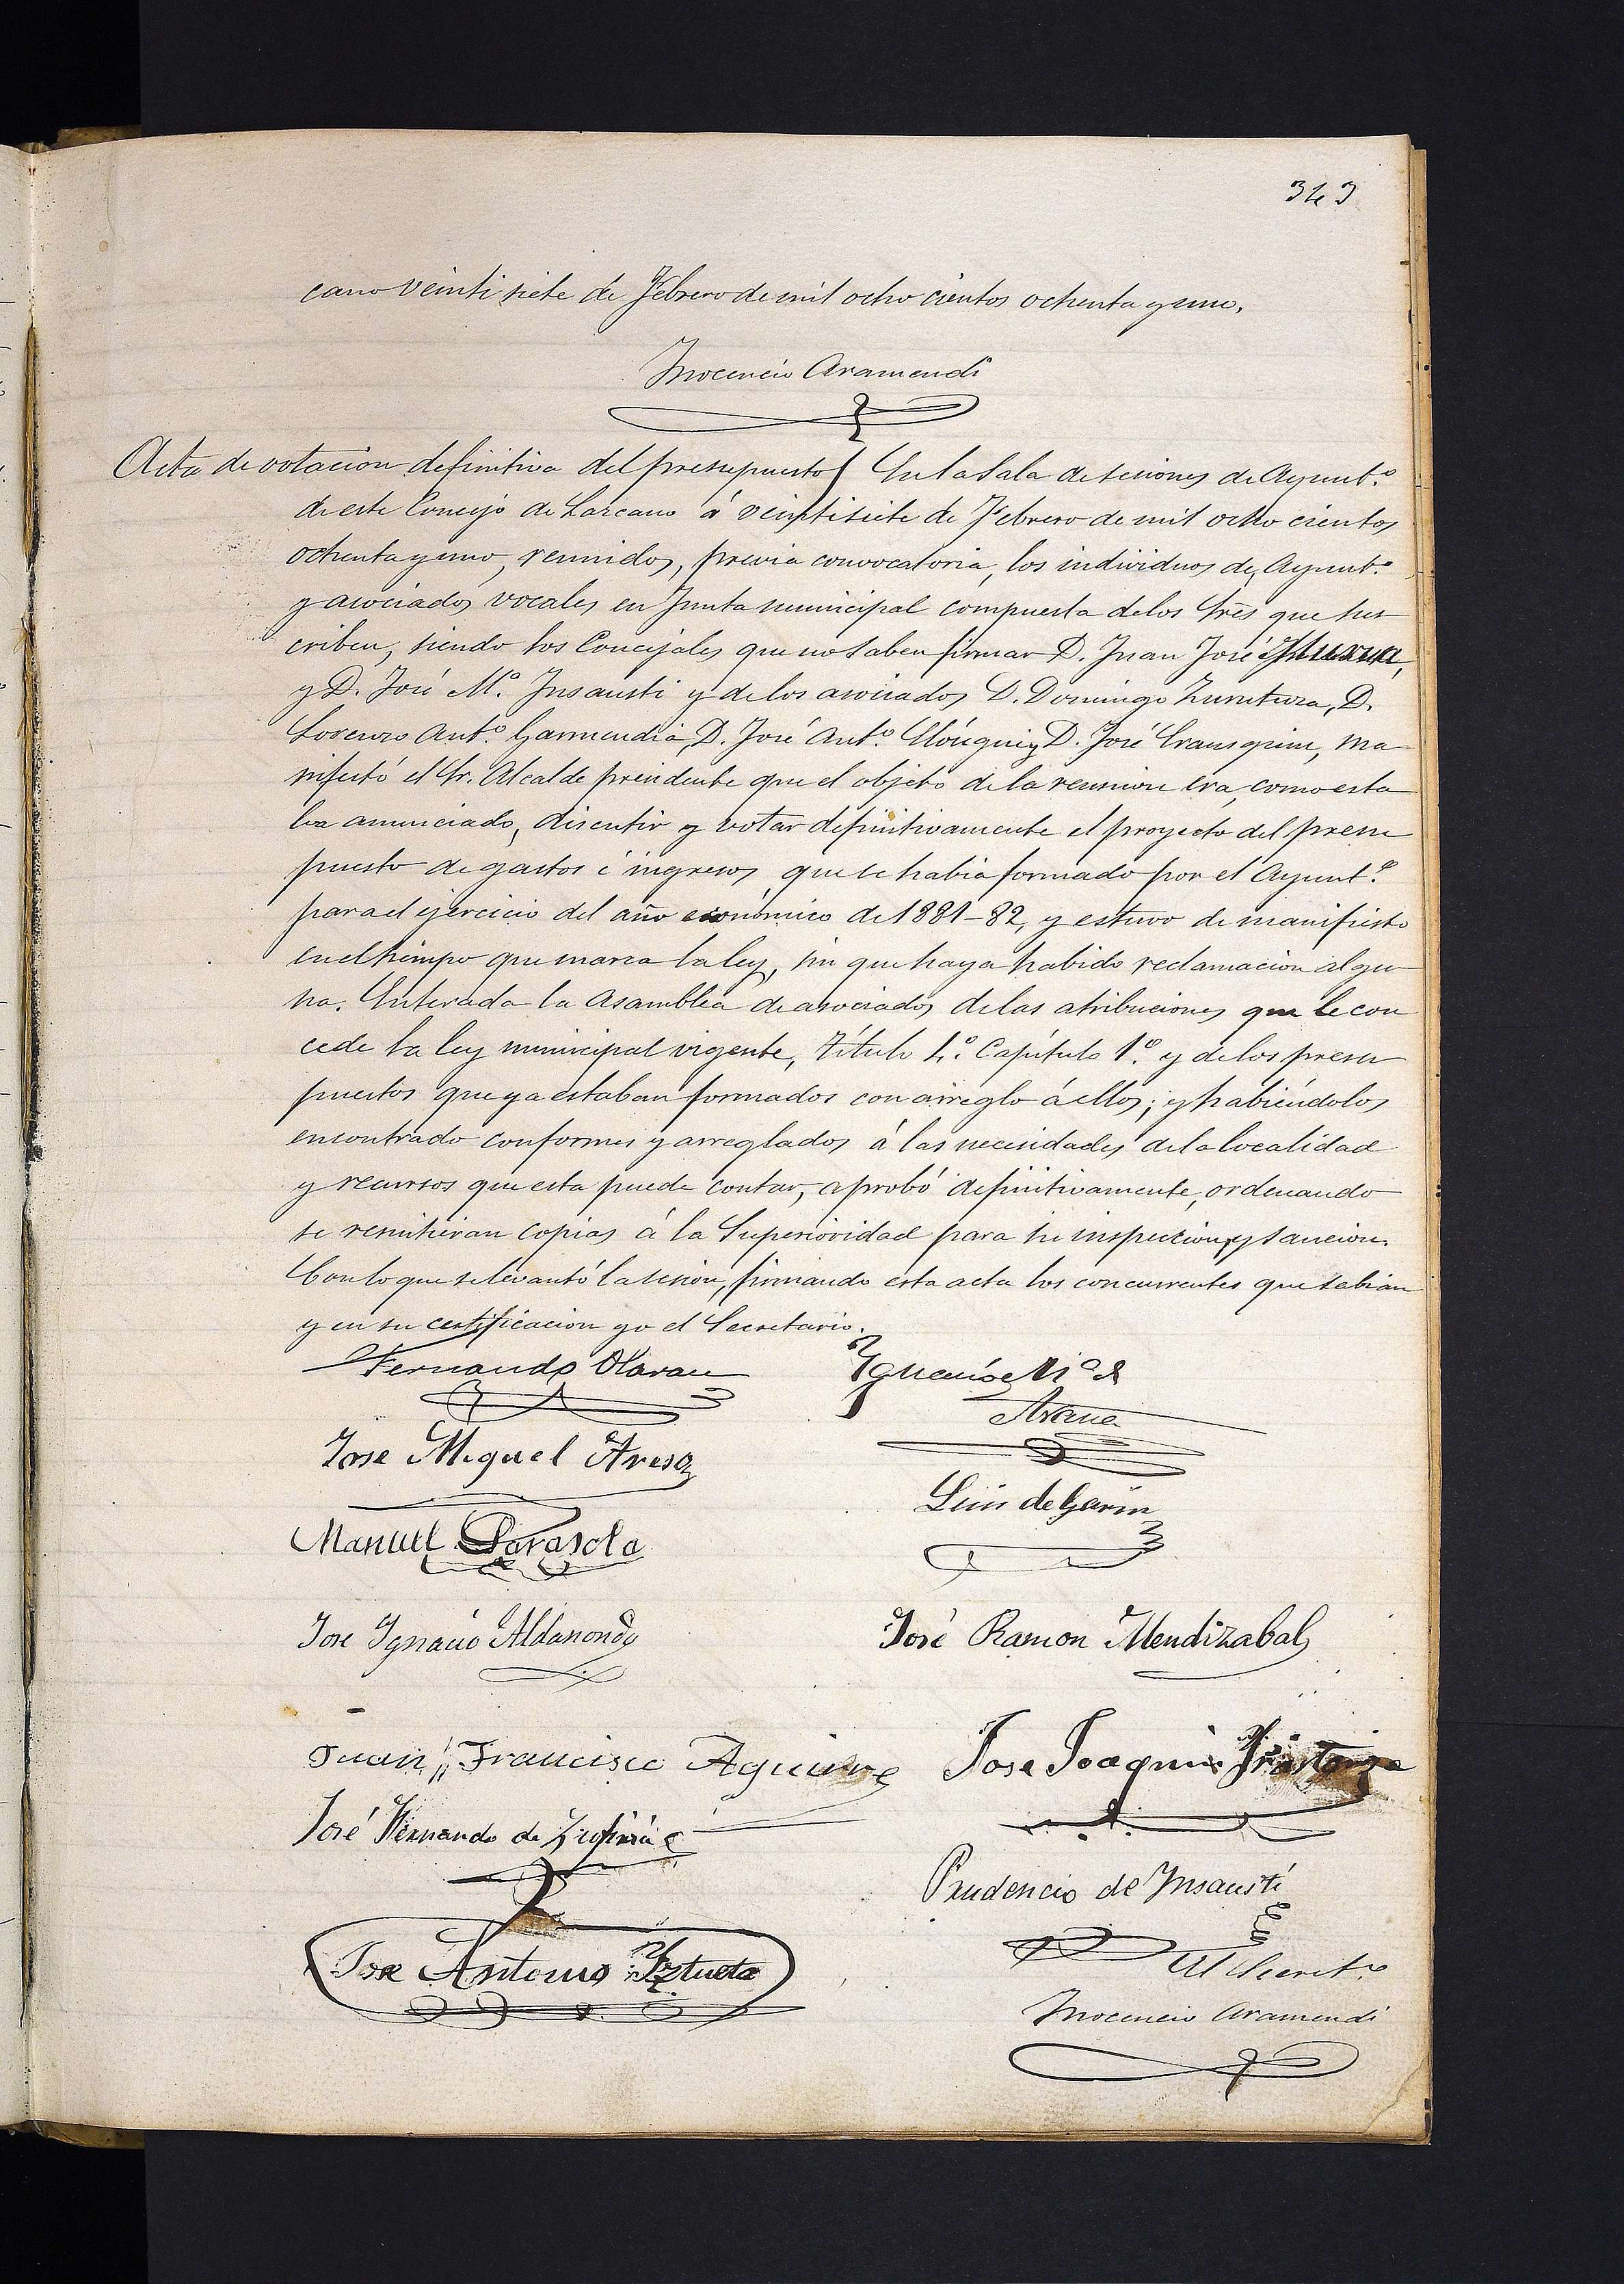 343
cano veinti siete de Febrero de mil ocho cientos ochenta y uno.
Inocencio Aramendi
Acta de votacion definitiva del presupuesto En la Sala de sesiones de Ayunt.º
de este Concejo de Lazcano á veintisiete de Febrero de mil ocho cientos
ochenta y uno, reunidos, previa convocatoria, los individuos de Ayunt.º
y asociados vocales en Junta municipal compuesta de los Sres que sus
criben, siendo los Concejales que no saben firmar D. Juan José
y D. José M.ª Insausti y de los asociados D. Domingo D.
Lorenzo Ant.º Garmendia, D. José Ant.º y D. José ma
nifestó el Sr. Alcalde presidente que el objeto de la reunion era, como esta
ba anunciado, discutir y votar definitivamente el proyecto del presu
puesto de gastos é ingresos, que se habia formado por el Ayunt.º
para el ejercicio del año económico de 1881-82, y estuvo de manifiesto
en el tiempo que marca la ley, sin que haya habido reclamacion algu
na. Enterada la Asamblea de asociados de las atribuciones que le con
cede la ley municipal vigente, título 4.º Capítulo 1.º y de los presu
puestos que ya estaban formados con arreglo á ellos; y habiéndolos
encontrado conformes y arreglados á las necesidades de la localidad
y recursos que esta puede contar, aprobó definitivamente, ordenando
se remitieran copias á la Superioridad para su inspeccion y sancion.
Con lo que se levantó la sesion, firmando esta acta los concurrentes que sabian
y en su certificacion yo el Secretario.
Fernando Olaran
Ignacio M.ª de
Arana
Jose Miguel Areso
Luis de Garin
Manuel Sarasola
Jose Ignacio Aldanondo
José Ramon Mendizabal
Juan Francisco Aguirre
Jose Joaquin Irastorza
José Fernando de
Prudencio de Insausti
Jose Antonio Iztueta
El Secret.º
Inocencio Aramendi